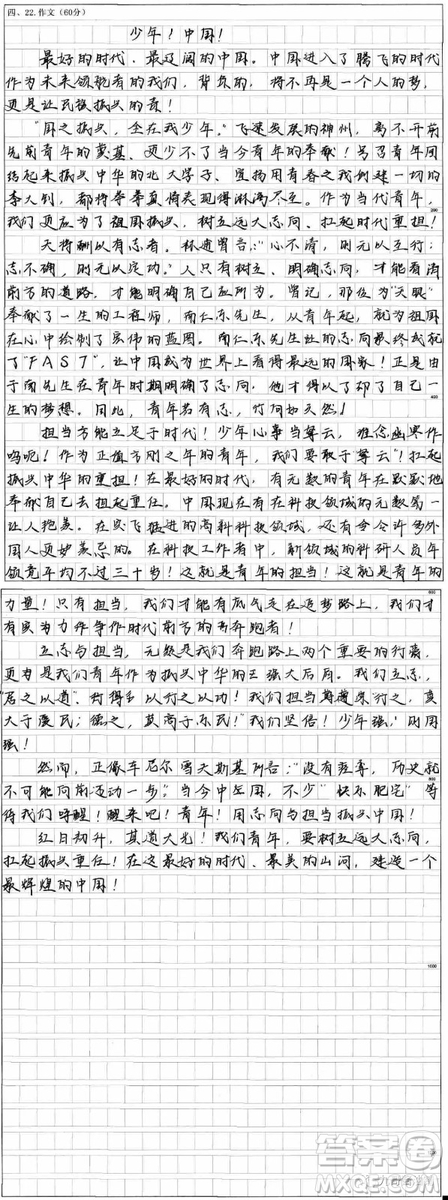 四、22.作文(60分)
少年!中国!
最好的时代,最辽阔的中国。中国进入了腾飞的时代
作为未来领航者的我们,背负的,将不再是一个人的梦,
更是让民族振兴的责!
"国之振兴,全在我少年。"飞速发展的神州,离不开前
先前青年的奠基、更少不了当今青年的奉献!号召青年团
结起来振兴中华的北大学子、
李大钊,都将 表现得淋漓尽 。作为当代青年,
200
我们更应为了祖国振兴,树立远大志向、扛起时代重担!
天将酬以有志者。林逋曾言:"心不清,则无以立行;
志不确,则无以定功。"人只有树立、明确志向,才能看清
前方的道路,才能明确自己 所为。曾记,那位为"天眼"
奉献了一生的工程师,南仁东先生,从青年起,就为祖国
在心中绘制了宏伟的蓝图。南仁东先生壮的志向最终成就
了"FAST",让中国成为世界上看得最远的国家!正是由
于南先生在青年时期明确了志向,他才得以了却了自己一
400
生的梦想。因此,青年若有志,何 如天然!
担当方能立足于时代!少年心事当拏云,谁念幽寒作
呜呃!作为正值方刚之年的青年,我们要敢于拏云!扛起
振兴中华的重担!在最好的时代,有无数的青年在默默地
奉献自己去担起重任。中国现在有在科技领域的无数第一
让人艳羡。在突飞猛进的高科科技领域,还有令令许多外
国人更妒羡忌的。在科技工作者中,新领域的科研人员年
领竟平均不过三十岁!这就是青年的担当!这就是青年的
600
力量!只有担当,我们才能有底气走在逐梦路上,我们才
有实力力作争作时代前方的 奔跑者!
立志与担当,无疑是我们奔跑路上两个重要的行囊,
更为是我们青年作为振兴中华的 强大后盾。我们立志,
"居之以道" 以行之以功!我们担当 行之,莫
大于 民; 之,莫高于 民!"我们坚信!少年强!则国
强!
800
然而,正像车尼尔雪夫斯基所言:"没有 ,历史就
不可能向前迈动一步。"当今中国,不少"快乐肥宅"等
待我们呼醒!醒来吧!青年!用志向与担当振兴中国!
红日初升,其道大光!我们青年,要树立远大志向,
扛起振兴重任!在这最好的时代、最美的山河,建造一个
最辉煌的中国!
1000
答案圈
MXQE.COM